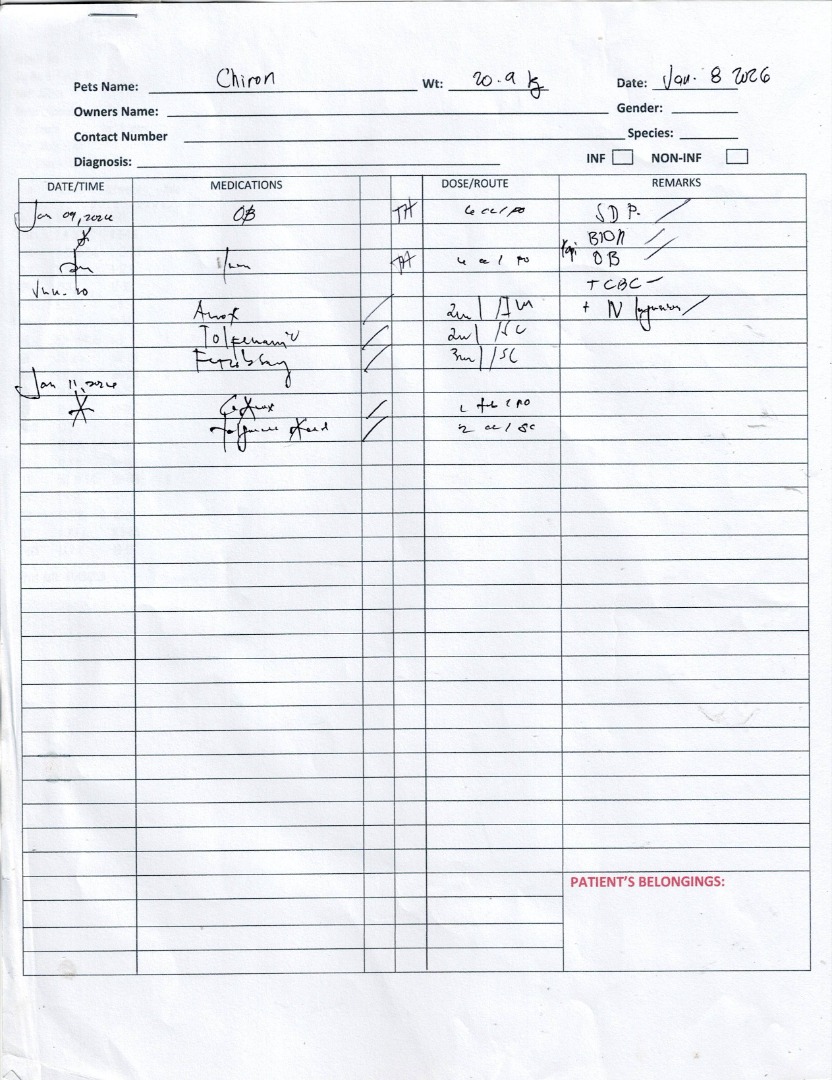 Pets Name: Chiron Wt: 20.9 kg Date: Jan. 8 2026
Owners Name: Gender:
Contact Number Species:
Diagnosis: INF NON-INF
DATE/TIME MEDICATIONS DOSE/ROUTE REMARKS
Jan 09, 2026 OB TH 4 cc/PO SDP.
BION
TH 4 cc/PO OB
Jan. 10 + CBC
Amox 2ml/IM + IV
Tolfenamic 2ml/SC
3ml/SC
Jan 11, 2026
PO
2 cc/SC
PATIENT'S BELONGINGS: